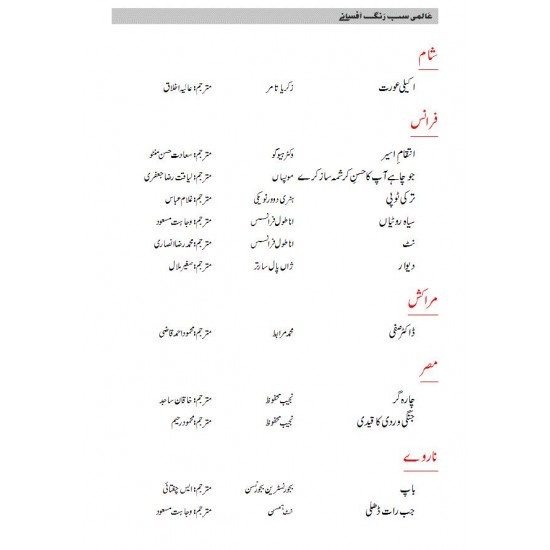 عالمی سب رنگ افسانے
شام
اکیلی عورت زکریا تامر مترجم: عالیہ اخلاق
فرانس
انتقامِ اسیر وکٹر ہیوگو مترجم: سعادت حسن منٹو
جو چاہے آپ کا حسنِ کرشمہ ساز کرے موپساں مترجم: لیاقت رضا جعفری
ترکی ٹوپی ہنری دوورنویکی مترجم: غلام عباس
سیاہ روٹیاں اناطول فرانسس مترجم: وجاہت مسعود
نٹ اناطول فرانسس مترجم: محمد رضا انصاری
دیوار ژاں پال سارتر مترجم: صغیر ملال
مراکش
ڈاکٹر صفی محمد مرابط مترجم: محمود احمد قاضی
مصر
چارہ گر نجیب محفوظ مترجم: خاقان ساجد
جنگی وردی کا قیدی نجیب محفوظ مترجم: محمود رحیم
ناروے
باپ بجورنسٹرین بجورنسن مترجم: ایس چغتائی
جب رات ڈھلی نٹ ہمسن مترجم: وجاہت مسعود